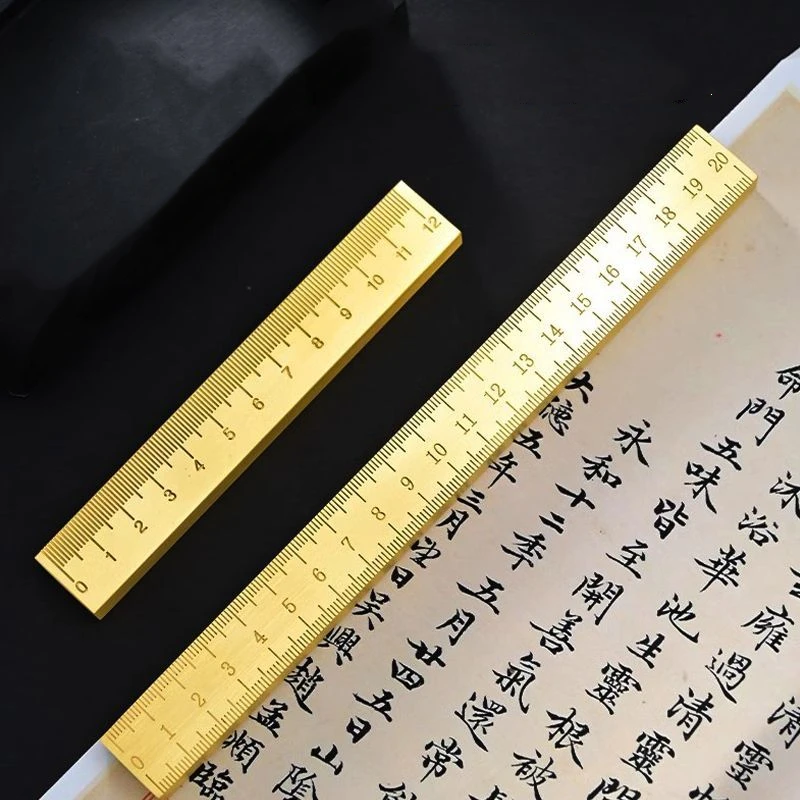 0 1 2 3 4 5 6 7 8 9 10 11 12
0 1 2 3 4 5 6 7 8 9 10 11 12 13 14 15 16 17 18 19 20
清靈
雍過清靈門
沐浴華池生靈根被
命門五味皆至開善氣還常
永和十二年五月廿四五日山陰
大德五年三月日吳興趙孟頫臨